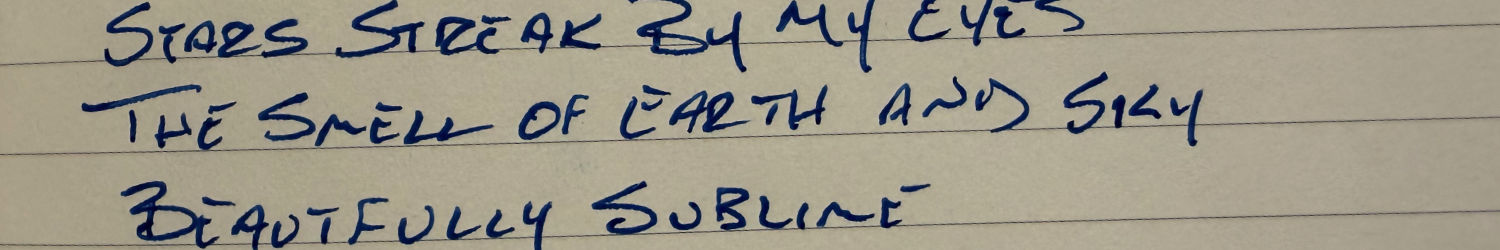 STARS STREAK BY MY EYES
THE SMELL OF EARTH AND SKY
BEAUTFULLY SUBLIME